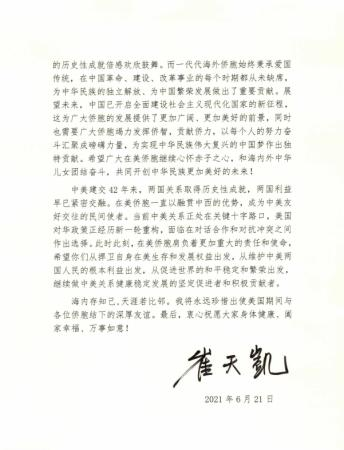 的历史性成就倍感欢欣鼓舞。而一代代海外侨胞始终秉承爱国
传统，在中国革命、建设、改革事业的每个时期都从未缺席，
为中华民族的独立解放、为中国繁荣发展做出了重要贡献。展
望未来，中国已开启全面建设社会主义现代化国家的新征程，
这为广大侨胞的发展提供了更加广阔、更加美好的前景，同时
也需要广大侨胞竭力发挥侨智，贡献侨力，以每个人的努力奋
斗汇聚成磅礴力量，为实现中华民族伟大复兴的中国梦作出独
特贡献。希望广大在美侨胞继续心怀赤子之心，和海内外中华
儿女团结奋斗，共同开创中华民族更加美好的未来！
中美建交 42 年来，两国关系取得历史性成就，两国利益
早已紧密交融。在美侨胞一直以融贯中西的优势，成为中美友
好交往的民间使者。当前中美关系正处在关键十字路口，美国
对华政策正经历新一轮重构，面临在对话合作和对抗冲突之间
作出选择。此时此刻，在美侨胞肩负着更加重大的责任和使命，
希望你们从捍卫自身在美生存和发展权益出发，从维护中美两
国人民的根本利益出发，从促进世界的和平稳定和繁荣出发，
继续做中美关系健康稳定发展的坚定促进者和积极贡献者。
海内存知己，天涯若比邻。我将永远珍惜出使美国期间与
各位侨胞结下的深厚友谊。最后，衷心祝愿大家身体健康、阖
家幸福、万事如意！
崔天凯
2021 年 6 月 21 日